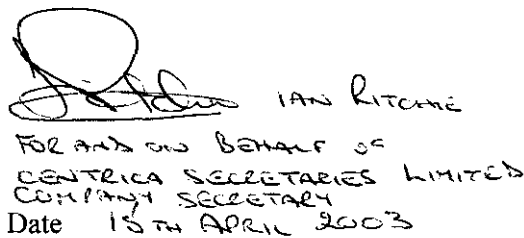 IAN RITCHIE
FOR AND ON BEHALF OF
CENTRICA SECRETARIES LIMITED
COMPANY SECRETARY
Date 15TH APRIL 2003